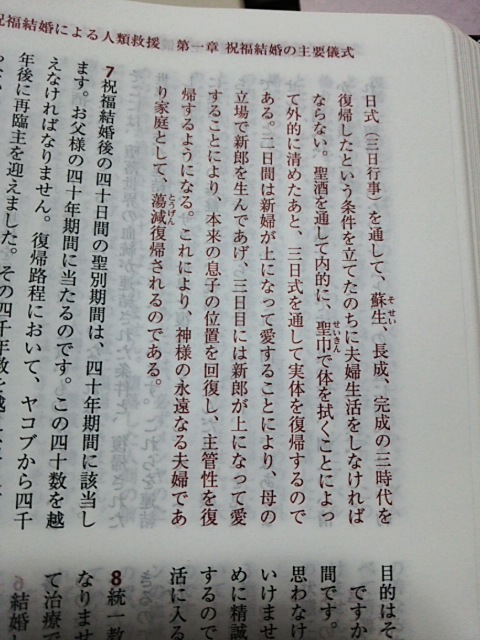 祝福結婚による人類救援 第一章 祝福結婚の主要儀式
日式(三日行事)を通して、蘇生、長成、完成の三時代を
復帰したという条件を立てたのちに夫婦生活をしなければ
ならない。聖酒を通して内的に、聖巾で体を拭くことによっ
て外的に清めたあと、三日式を通して実体を復帰するので
ある。二日間は新婦が上になって愛することにより、母の
立場で新郎を生んであげ、三日目には新郎が上になって愛
することにより、本来の息子の位置を回復し、主管性を復
帰するようになる。これにより、神様の永遠なる夫婦であ
り家庭として、蕩減復帰されるのである。
7 祝福結婚後の四十日間の聖別期間は、四十年期間に該当し
ます。お父様の四十年期間に当たるのです。この四十数を越
えなければなりません。復帰路程において、ヤコブから四千
年後に再臨主を迎えました。その四千年数を越
目的はそ
間です。
ですか
思わなけ
いけませ
めに精誠
するので
活に入る
8 統一教
なりませ
て治療で
結婚し